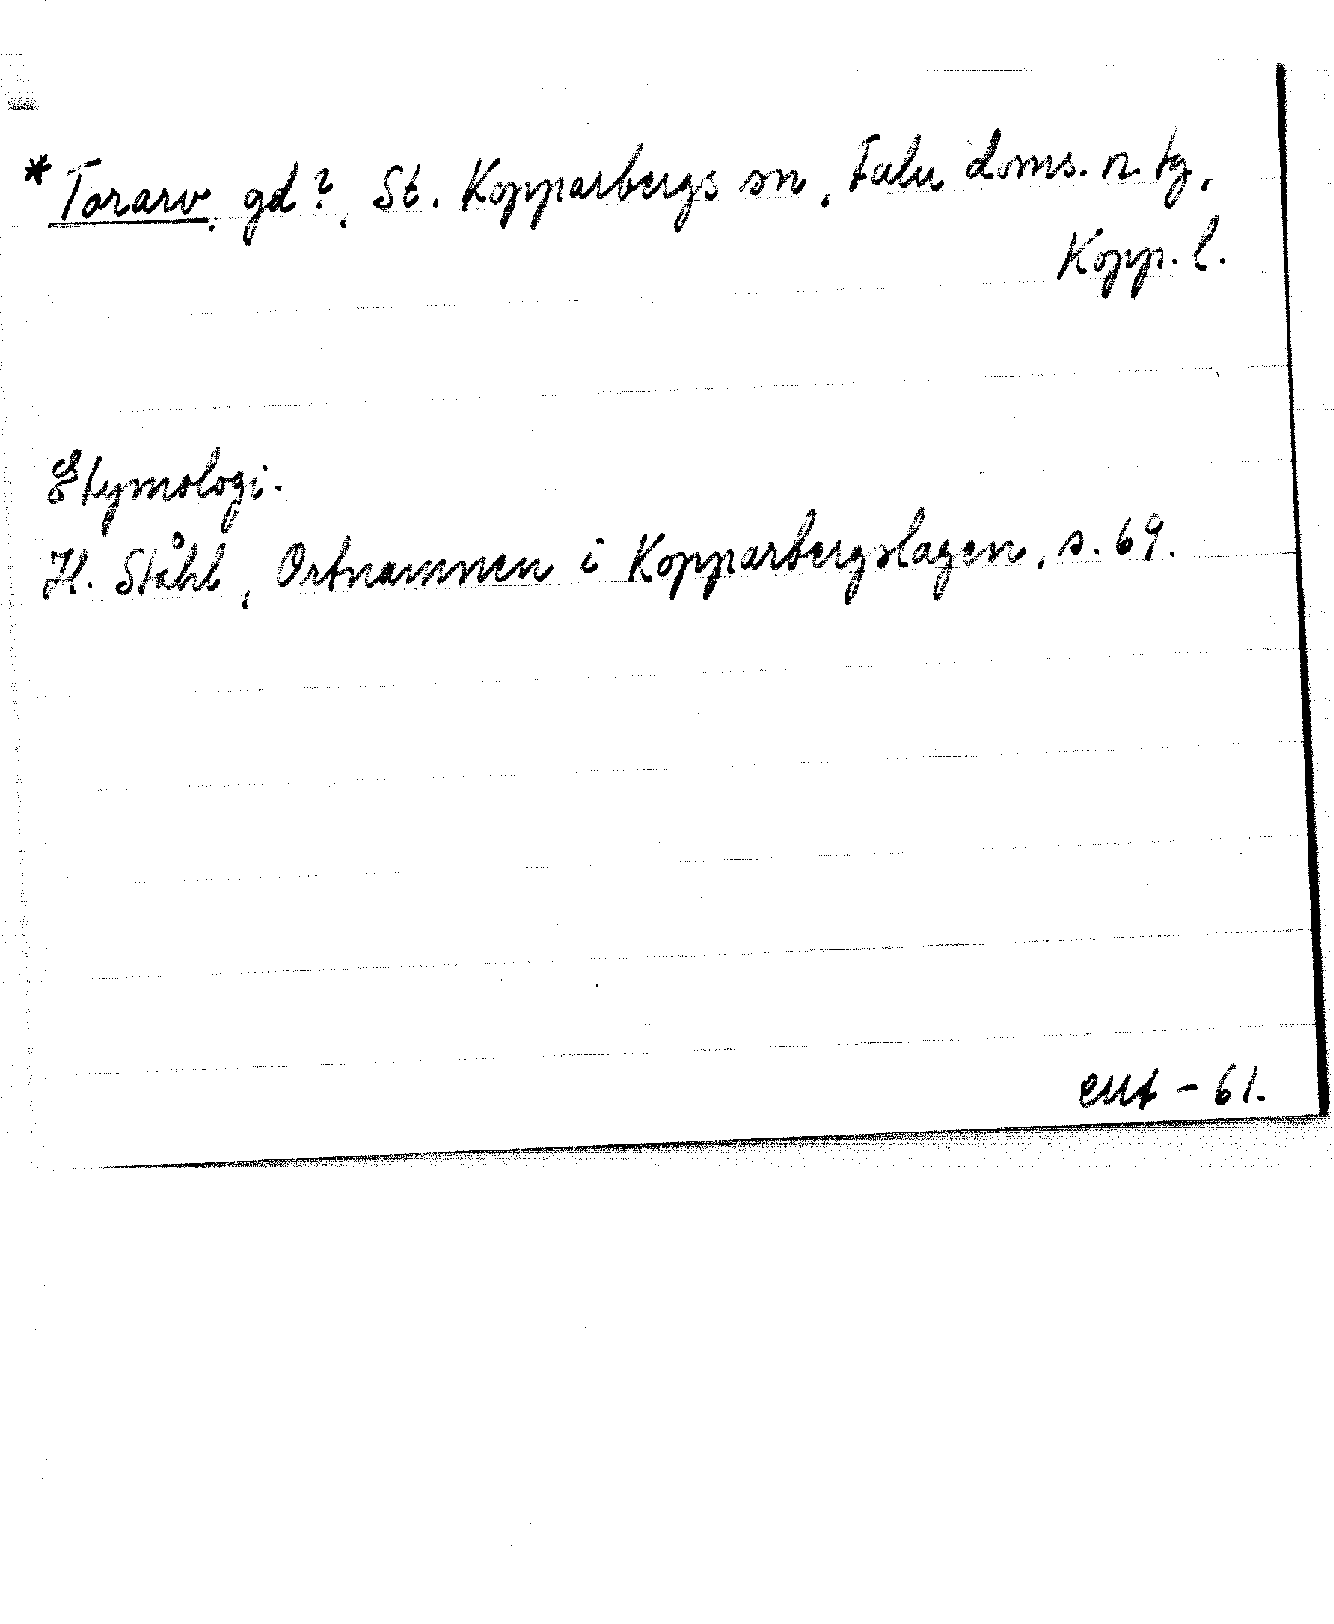 *Torarv, gd?, St. Kopparbergs sn, Falu doms. n. tg,
Kopp. l.
Etymologi.
H. Ståhl, Ortnamnen i Kopparbergslagen, s. 69.
- 61.